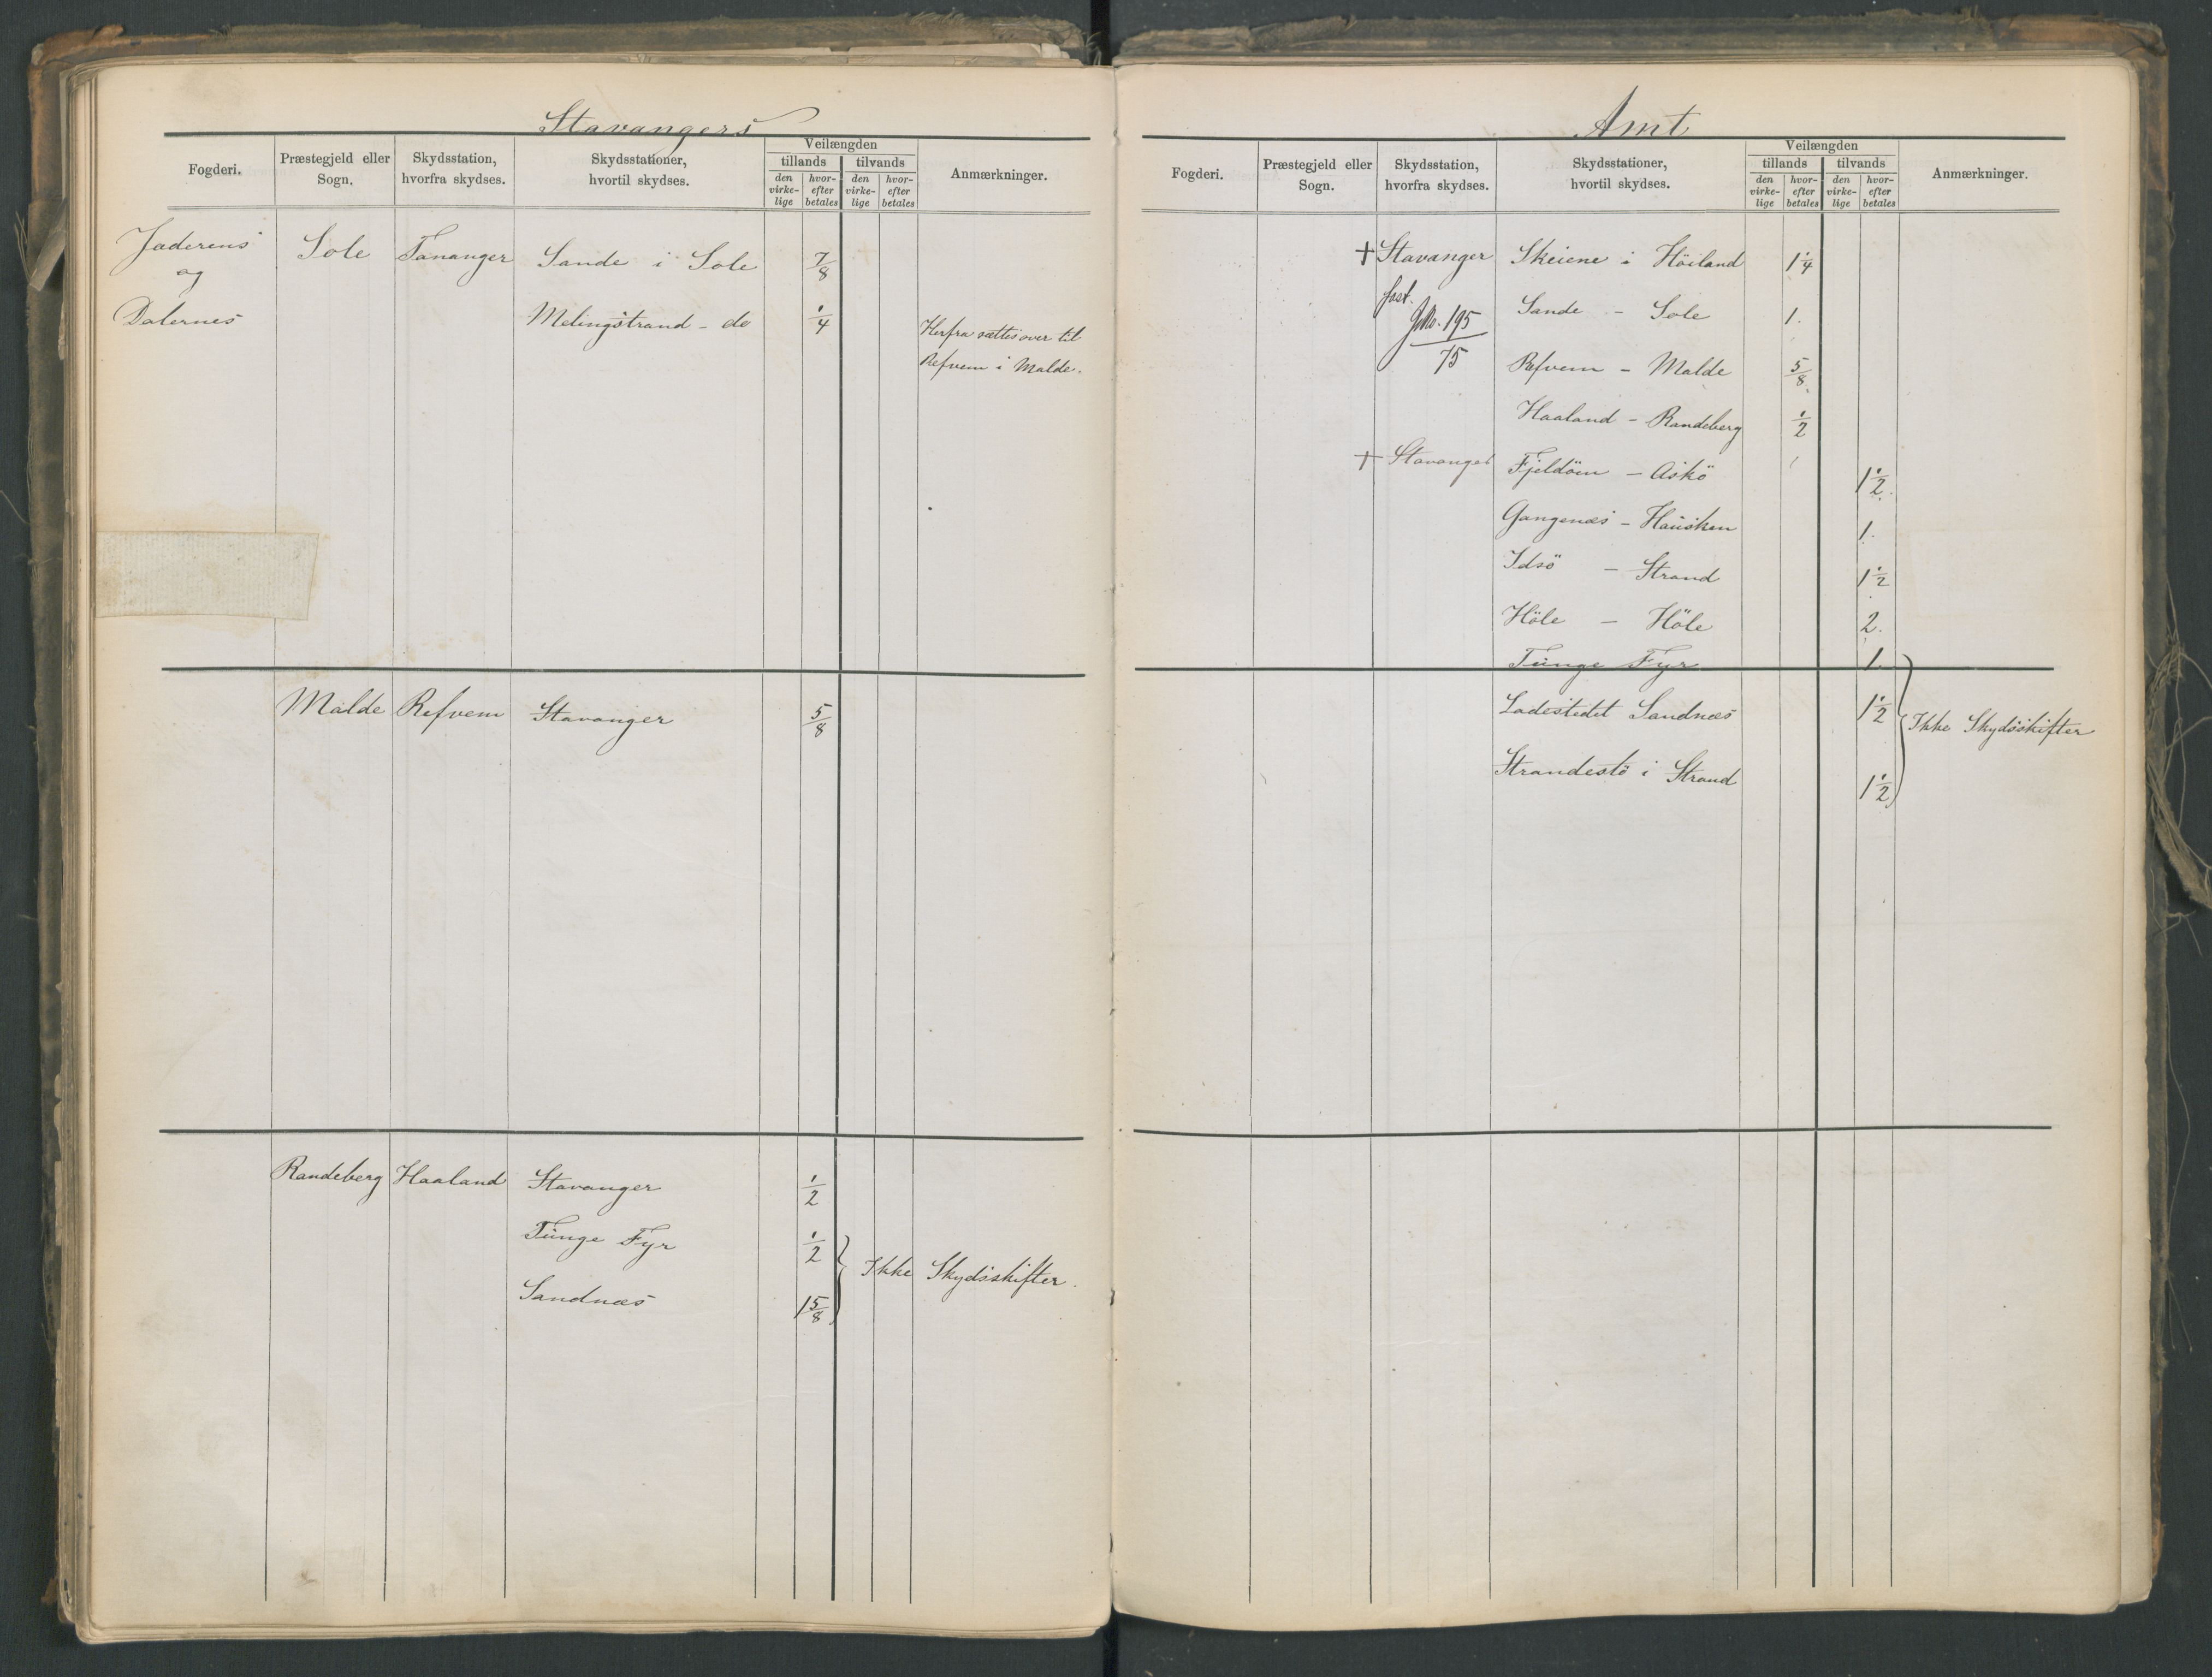 Stavangers
Fogderi. Præstegjeld eller Sogn. Skydsstation, hvorfra skydses. Skydsstationer, hvortil skydses. Veilængden tillands den virkelige hvorefter betales tilvands den virkelige hvorefter betales Anmærkninger.
Jæderens og Dalernes Sole Tananger Sande i Sole 7/8
Melingstrand - do 1/4 Herfra sættes over til
Refvem i Malde.
Malde Refvem Stavanger 5/8
Randeberg Haaland Stavanger 1/2
Tunge Fyr 1/2
Sandnæs 1 5/8
} Ikke Skydsskifter.
Amt
Fogderi. Præstegjeld eller Sogn. Skydsstation, hvorfra skydses. Skydsstationer, hvortil skydses. Veilængden tillands den virkelige hvorefter betales tilvands den virkelige hvorefter betales Anmærkninger.
+ Stavanger Skeiene i Höiland 1 1/4
fast.
195/75
Sande - Sole 1.
Refvem - Malde 5/8.
Haaland - Randeberg 1/2
+ Stavanger Fjeldöen - Askö 1 1/2.
Gangenæs - Hausken 1.
Idsö - Strand 1 1/2
Höle - Höle 2.
Tunge Fyr 1.
Ladestedet Sandnæs 1 1/2
Strandestö i Strand 1 1/2
} Ikke Skydsskifter